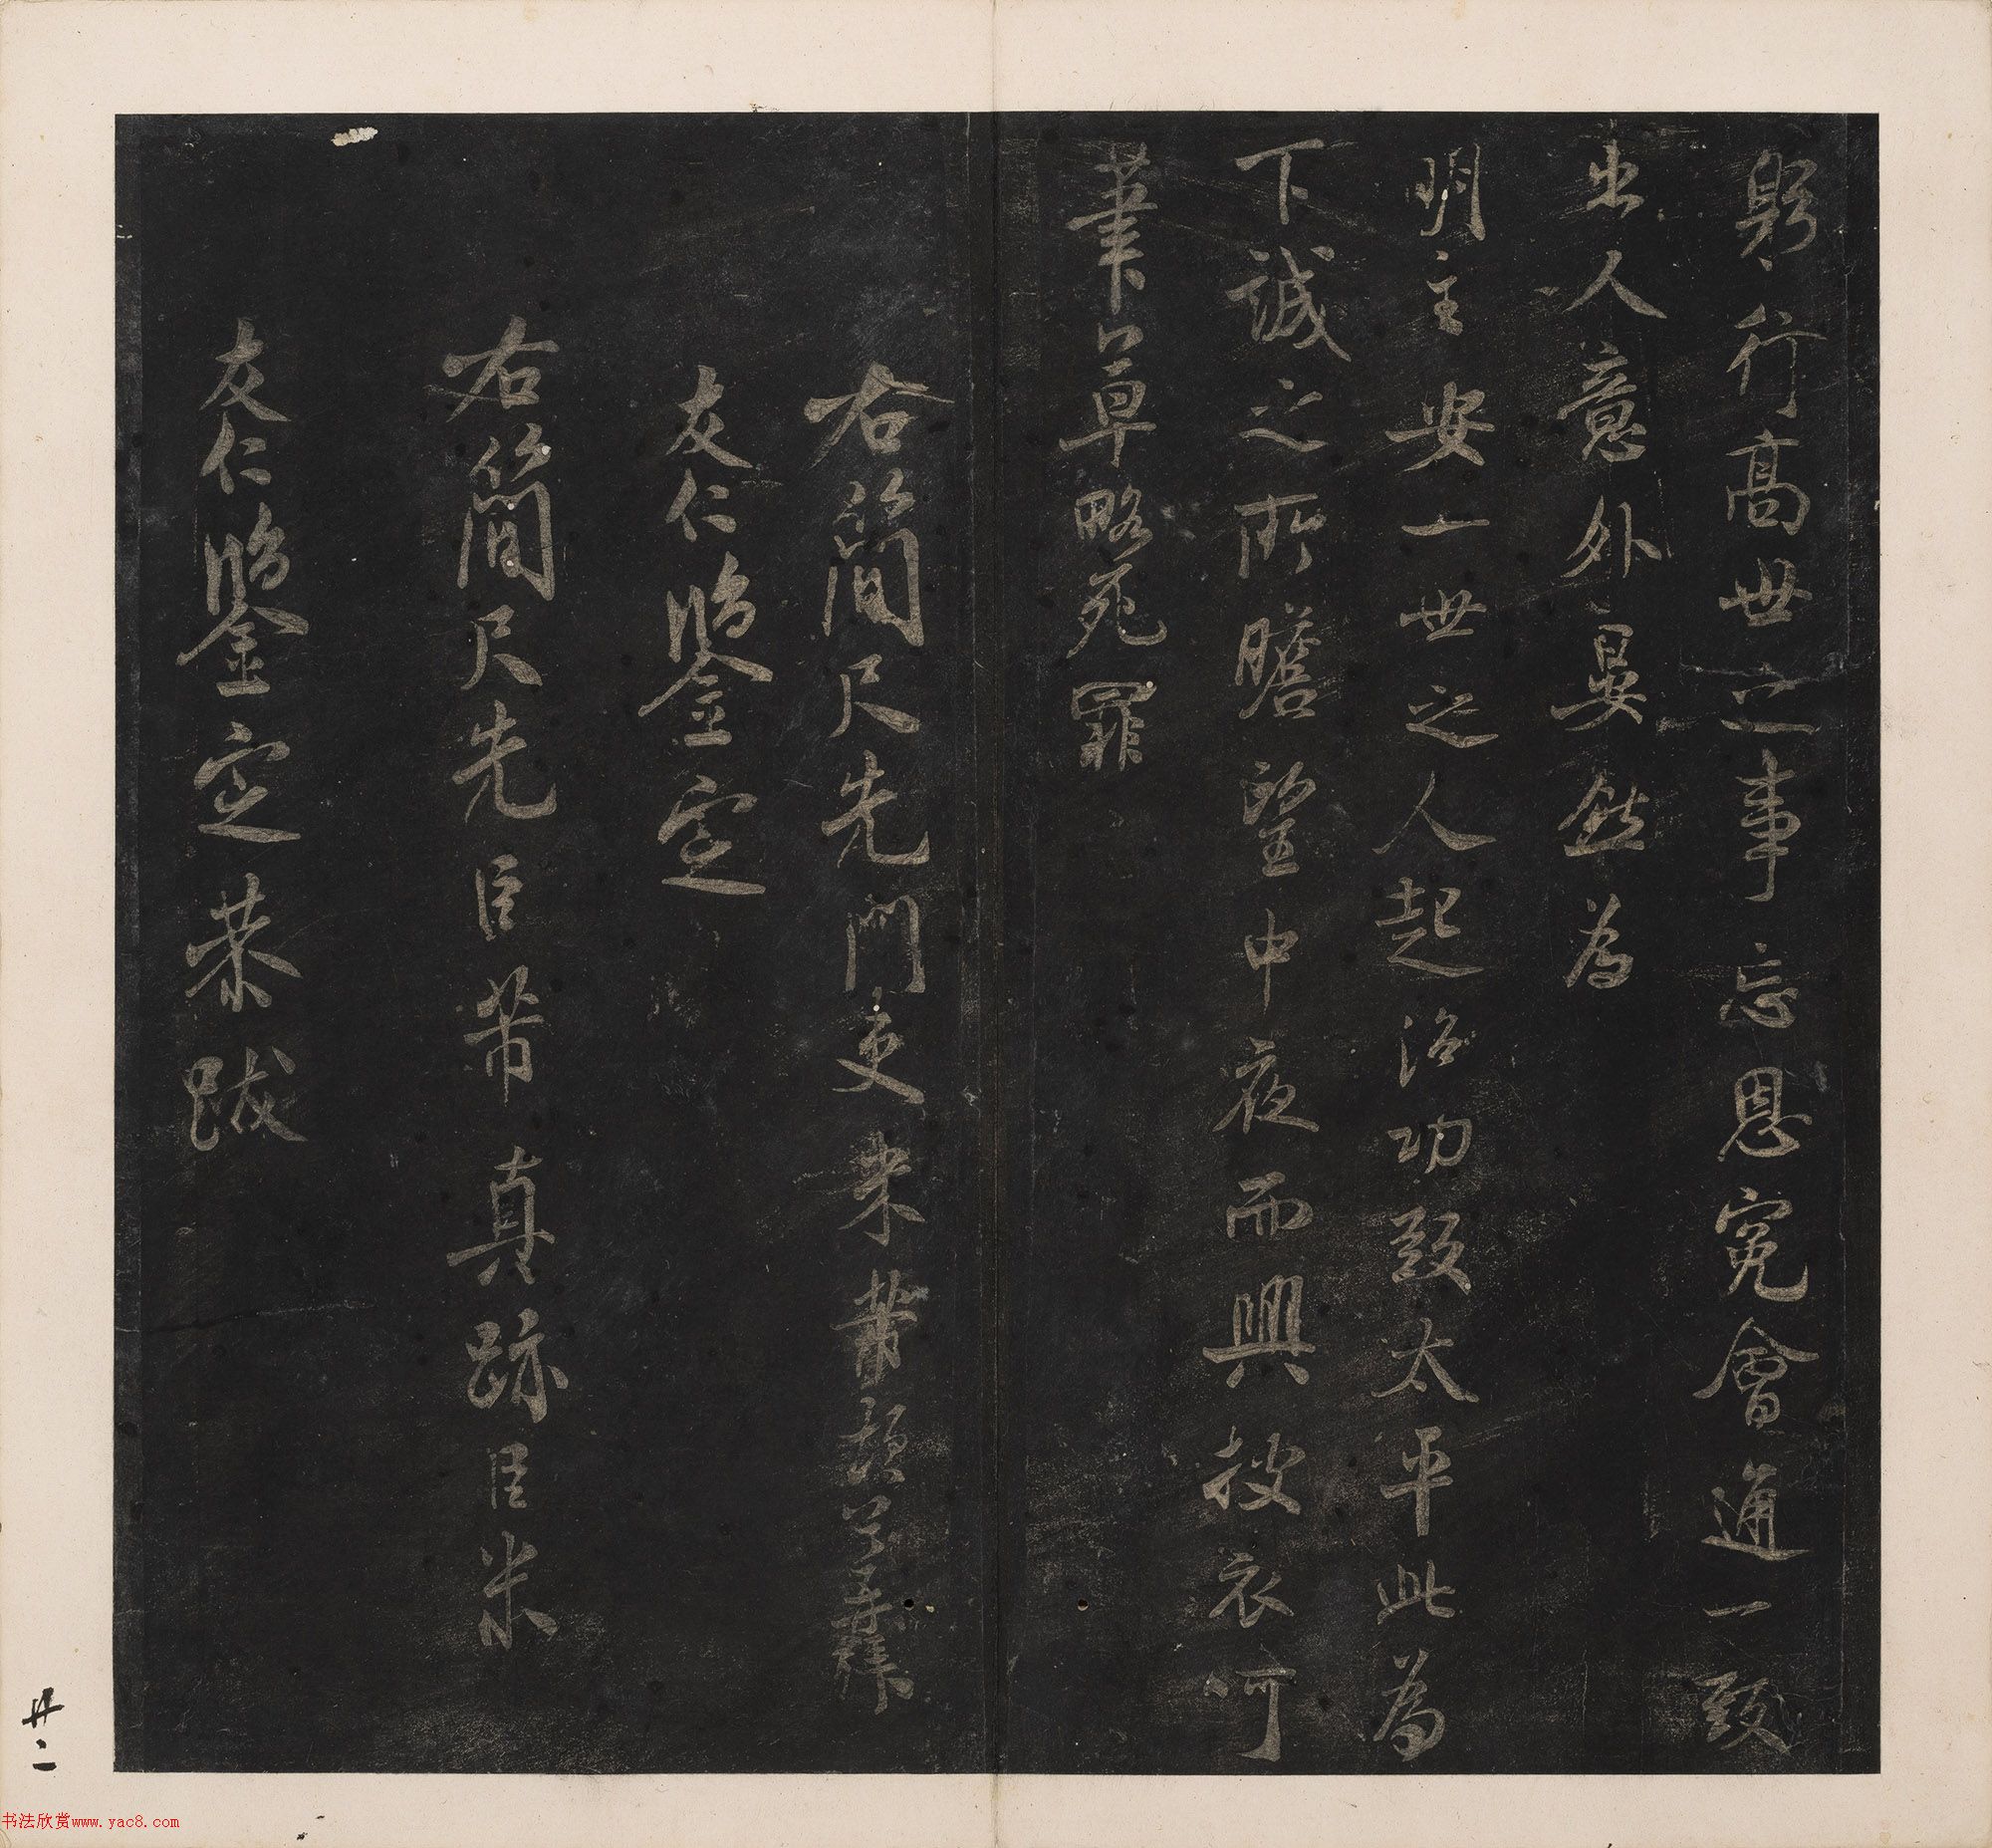 行高世之事忘恩冤會通一致
出人意外晏然為
明主安一世之人起洽功致太平此為
下誠之所瞻望中夜而興披衣呵
筆草略死罪
右簡尺先門吏米芾
友仁鑒定
右簡尺先臣芾真跡臣米
友仁鑒定恭跋
廿二
书法欣赏www.yac8.com